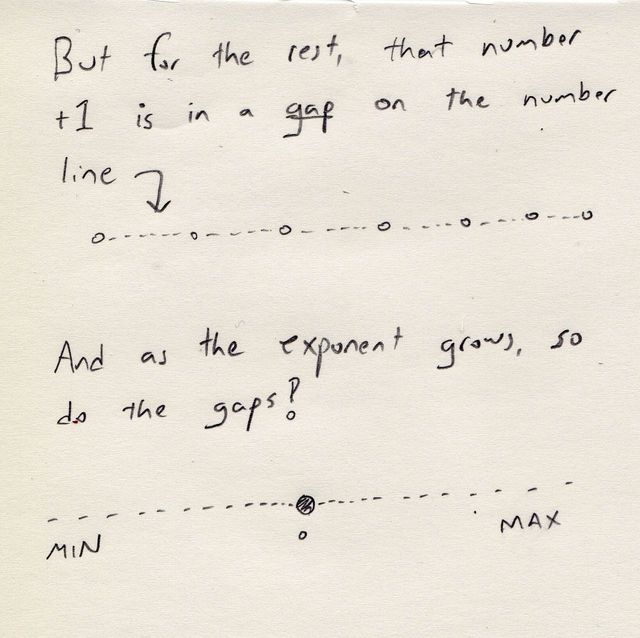 But for the rest, that number
+1 is in a gap on the number
line
And as the exponent grows, so
do the gaps!
MIN
MAX
0